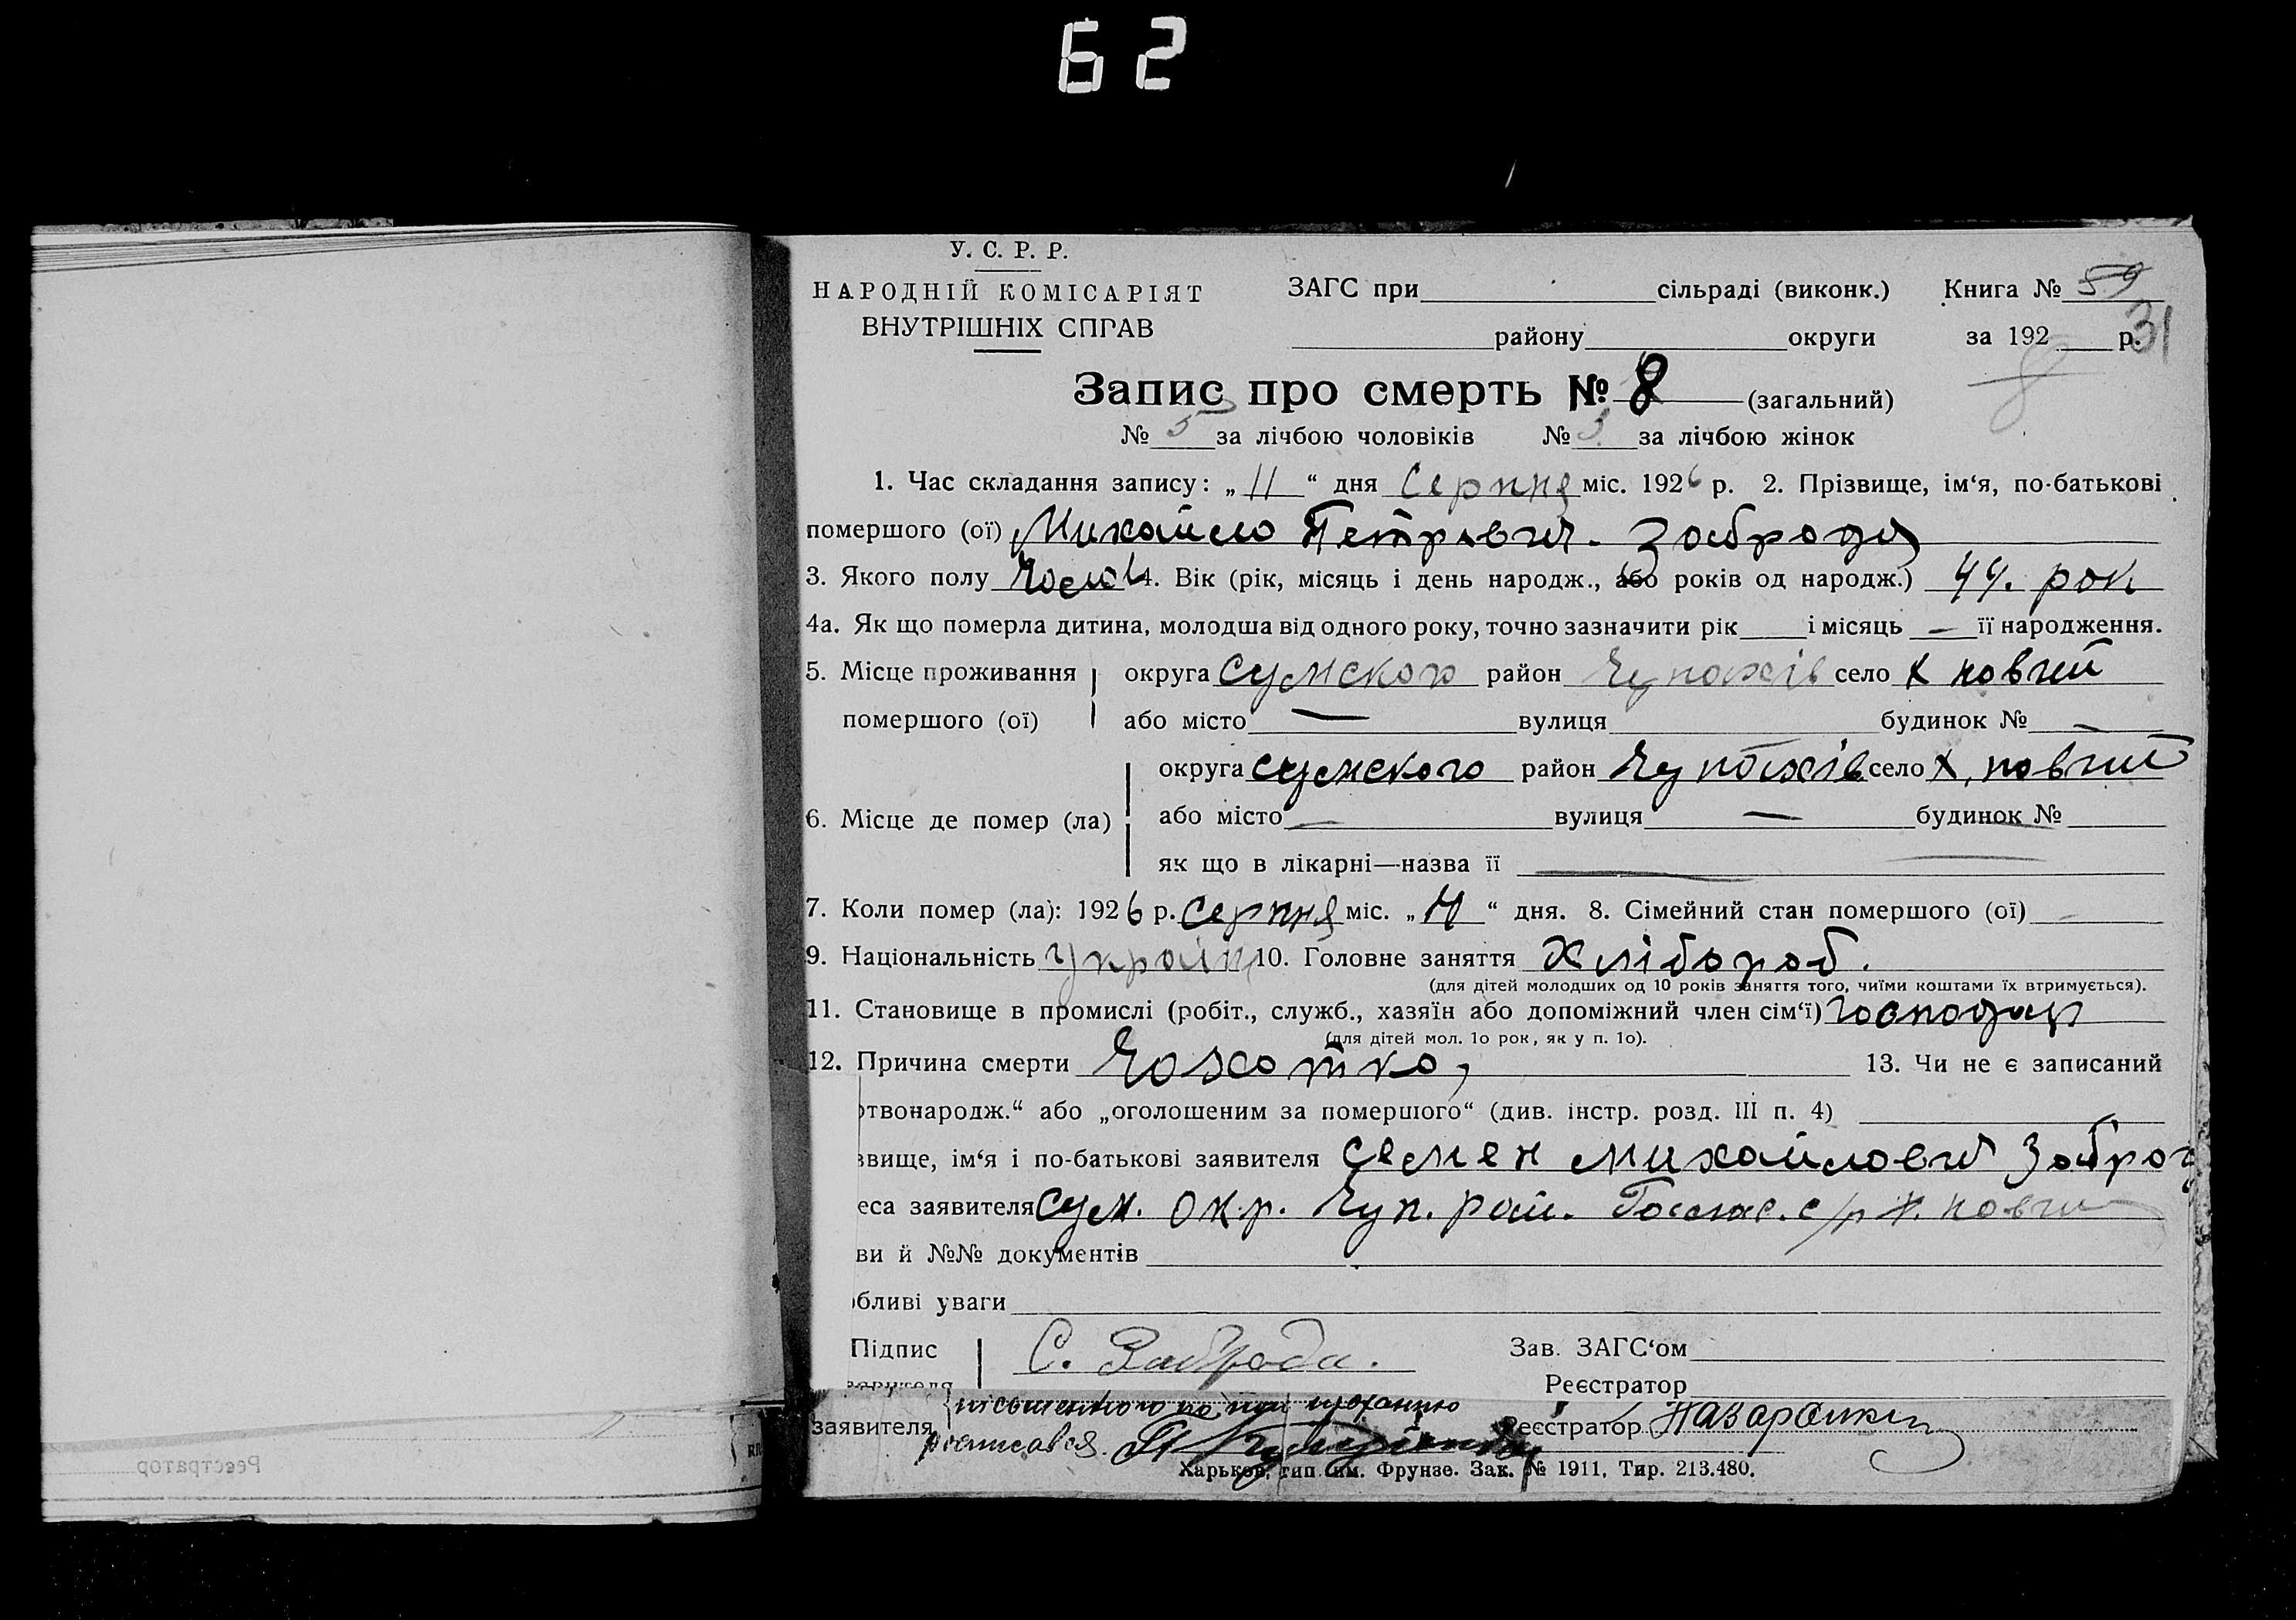 62
У. С. Р. Р.
НАРОДНІЙ КОМІСАРІЯТ
ВНУТРІШНІХ СПРАВ
ЗАГС при сільраді (виконк.) Книга № 59
району округи за 192 р. 31
8
Запис про смерть № 8 (загальний)
№ 5 за лічбою чоловіків № 3 за лічбою жінок
1. Час складання запису: „11“ дня Серпня міс. 1926 р. 2. Прізвище, ім‘я, по-батькові
помершого (ої) Михайло Петрович. Заброда
3. Якого полу Чолов 4. Вік (рік, місяць і день народж., або років од народж.) 44. рок
4а. Як що померла дитина, молодша від одного року, точно зазначити рік і місяць — її народження.
5. Місце проживання округа Сумского район Чупахів село х повчий
помершого (ої) або місто — вулиця будинок № —
округа Сумского район Чупахів село х. повчий
6. Місце де помер (ла) або місто — вулиця — будинок №
як що в лікарні—назва її —
7. Коли помер (ла): 1926 р. Серпня міс. „ “ дня. 8. Сімейний стан помершого (ої) —
9. Національність Україн 10. Головне заняття Хлібороб.
(для дітей молодших од 10 років заняття того, чиїми коштами їх втримується).
11. Становище в промислі (робіт., служб., хазяїн або допоміжний член сім‘ї) господар
(для дітей мол. 10 рок, як у п. 10).
12. Причина смерти Чохотка, 13. Чи не є записаний
отвонародж.“ або „оголошеним за помершого“ (див. інстр. розд. III п. 4)
звище, ім‘я і по-батькові заявителя Семен Михайлович Заброд
еса заявителя Сум. окр. Чуп. рай. с/р х. повчи
ви й №№ документів
обливі уваги
Підпис С. Заброда. Зав. ЗАГС‘ом
заявителя Реєстратор
заявителя росписався. Реєстратор
Харьков, тип. им. Фрунзе. Зак. № 1911. Тир. 213.480.
Реєстратор